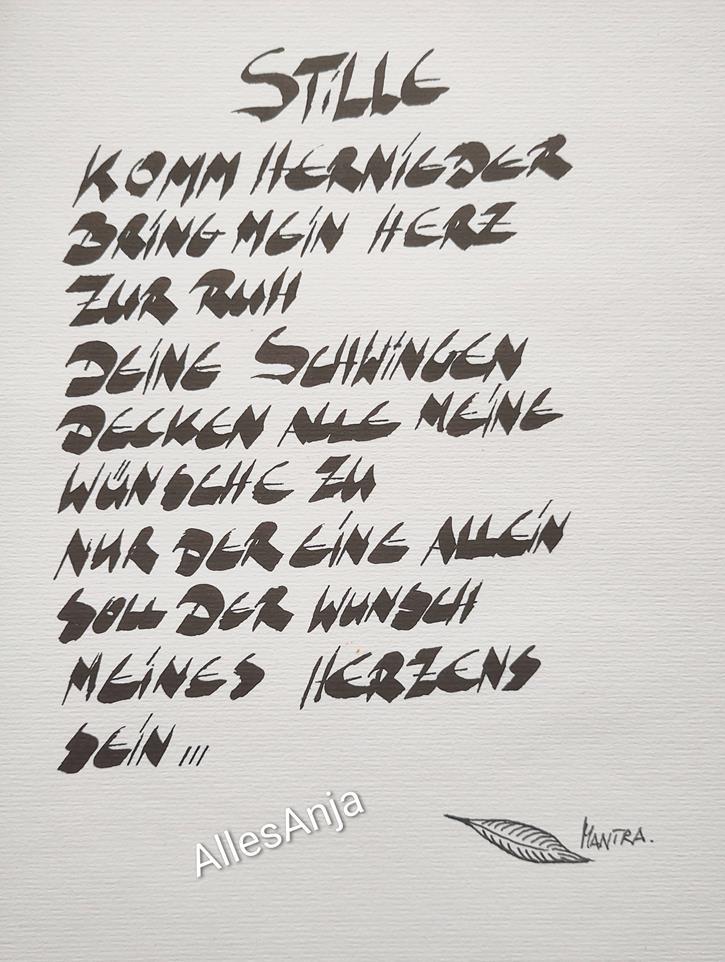 STiLLE
KOMM HERNiEDER
BRiNG MEiN HERZ
ZUR RUH
DEiNE SCHWiNGEN
DECKEN ALLE MEiNE
WÜNSCHE ZU
NUR DER EiNE ALLEiN
SOLL DER WUNSCH
MEiNES HERZENS
SEiN ...
AllesAnja
MANTRA.